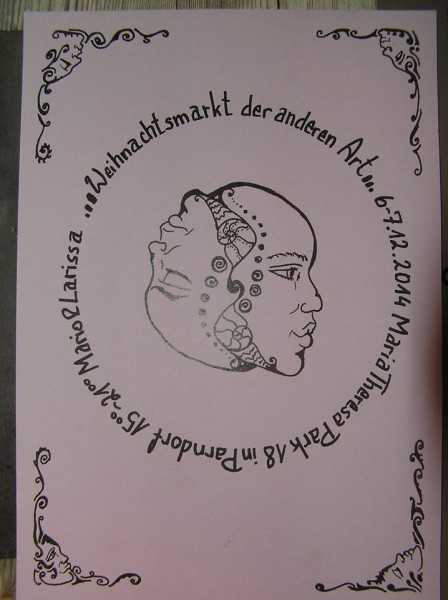 ...Weihnachtsmarkt der anderen Art... 6-7.12.2014 Maria Theresa Park 18 in Parndorf 15⁰⁰-21⁰⁰ Mario & Larissa